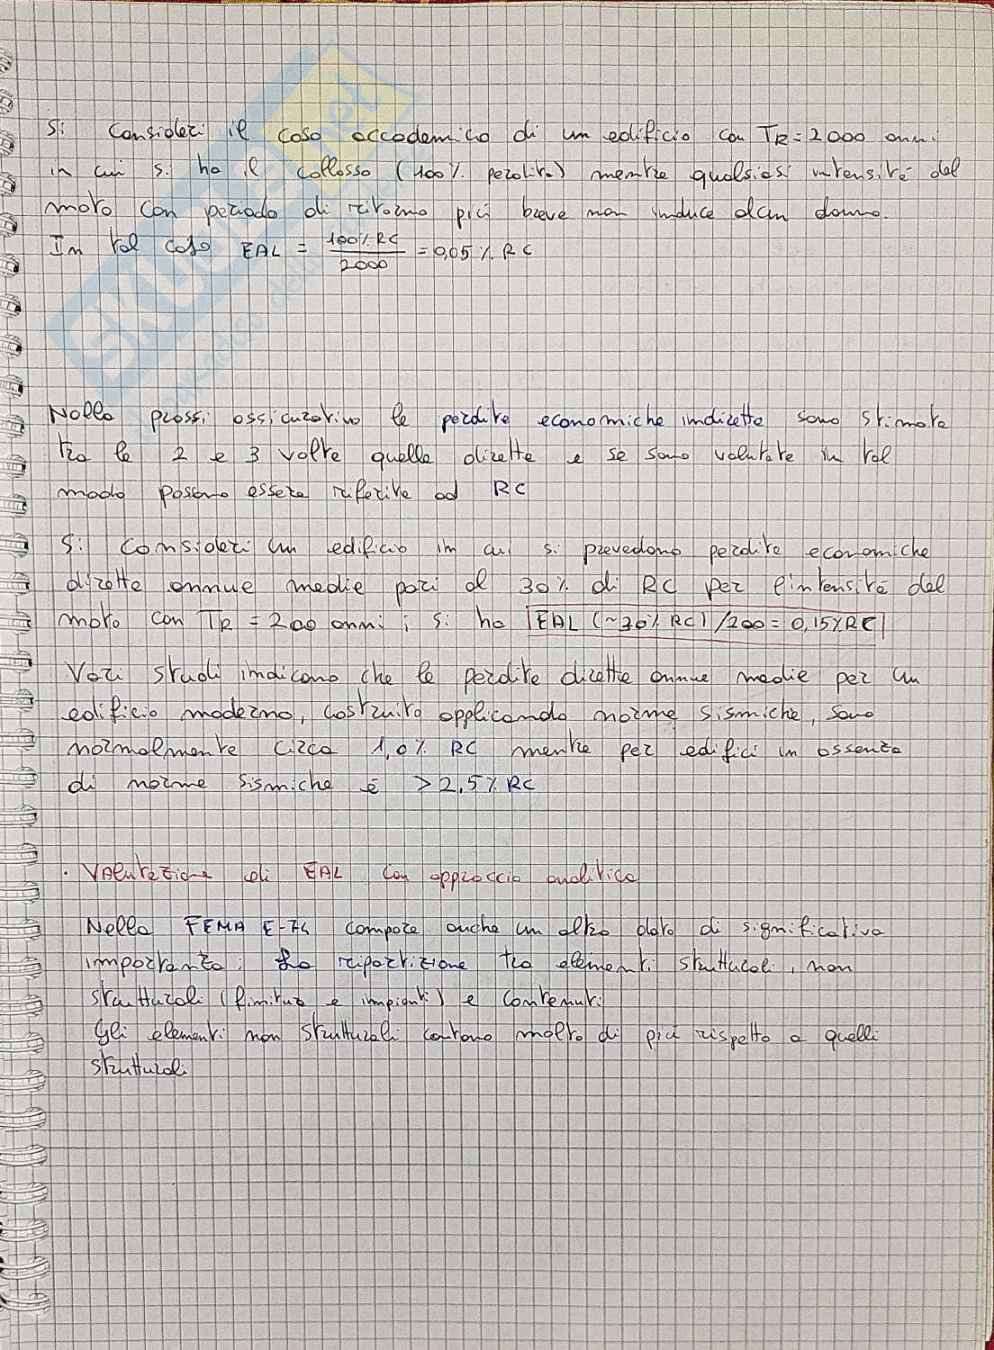 Si consideri il caso accademico di un edificio con TR = 2000 anni
in cui si ha il collasso (100% perdita) mentre qualsiasi intensità del
moto con periodo di ritorno più breve non induce alcun danno.
In tal caso EAL = 100% RC / 2000 = 0,05 % RC
Nella prassi assicurativa le perdite economiche indirette sono stimate
tra le 2 e 3 volte quelle dirette e se sono valutate in tal
modo possono essere riferite ad RC
Si consideri un edificio in cui si prevedono perdite economiche
dirette annue medie pari al 30% di RC per l'intensità del
moto con TR = 200 anni; si ha EAL (~30% RC) /200 = 0,15% RC
Vari studi indicano che le perdite dirette annue medie per un
edificio moderno, costruito applicando norme sismiche, sono
normalmente circa 1,0% RC mentre per edifici in assenza
di norme sismiche è > 2,5% RC
· Valutazione di EAL con approccio analitico
Nella FEMA E-74 compare anche un altro dato di significativa
importanza: la ripartizione tra elementi strutturali, non
strutturali (finiture e impianti) e contenuti
Gli elementi non strutturali contano molto di più rispetto a quelli
strutturali
SKUOLA.net